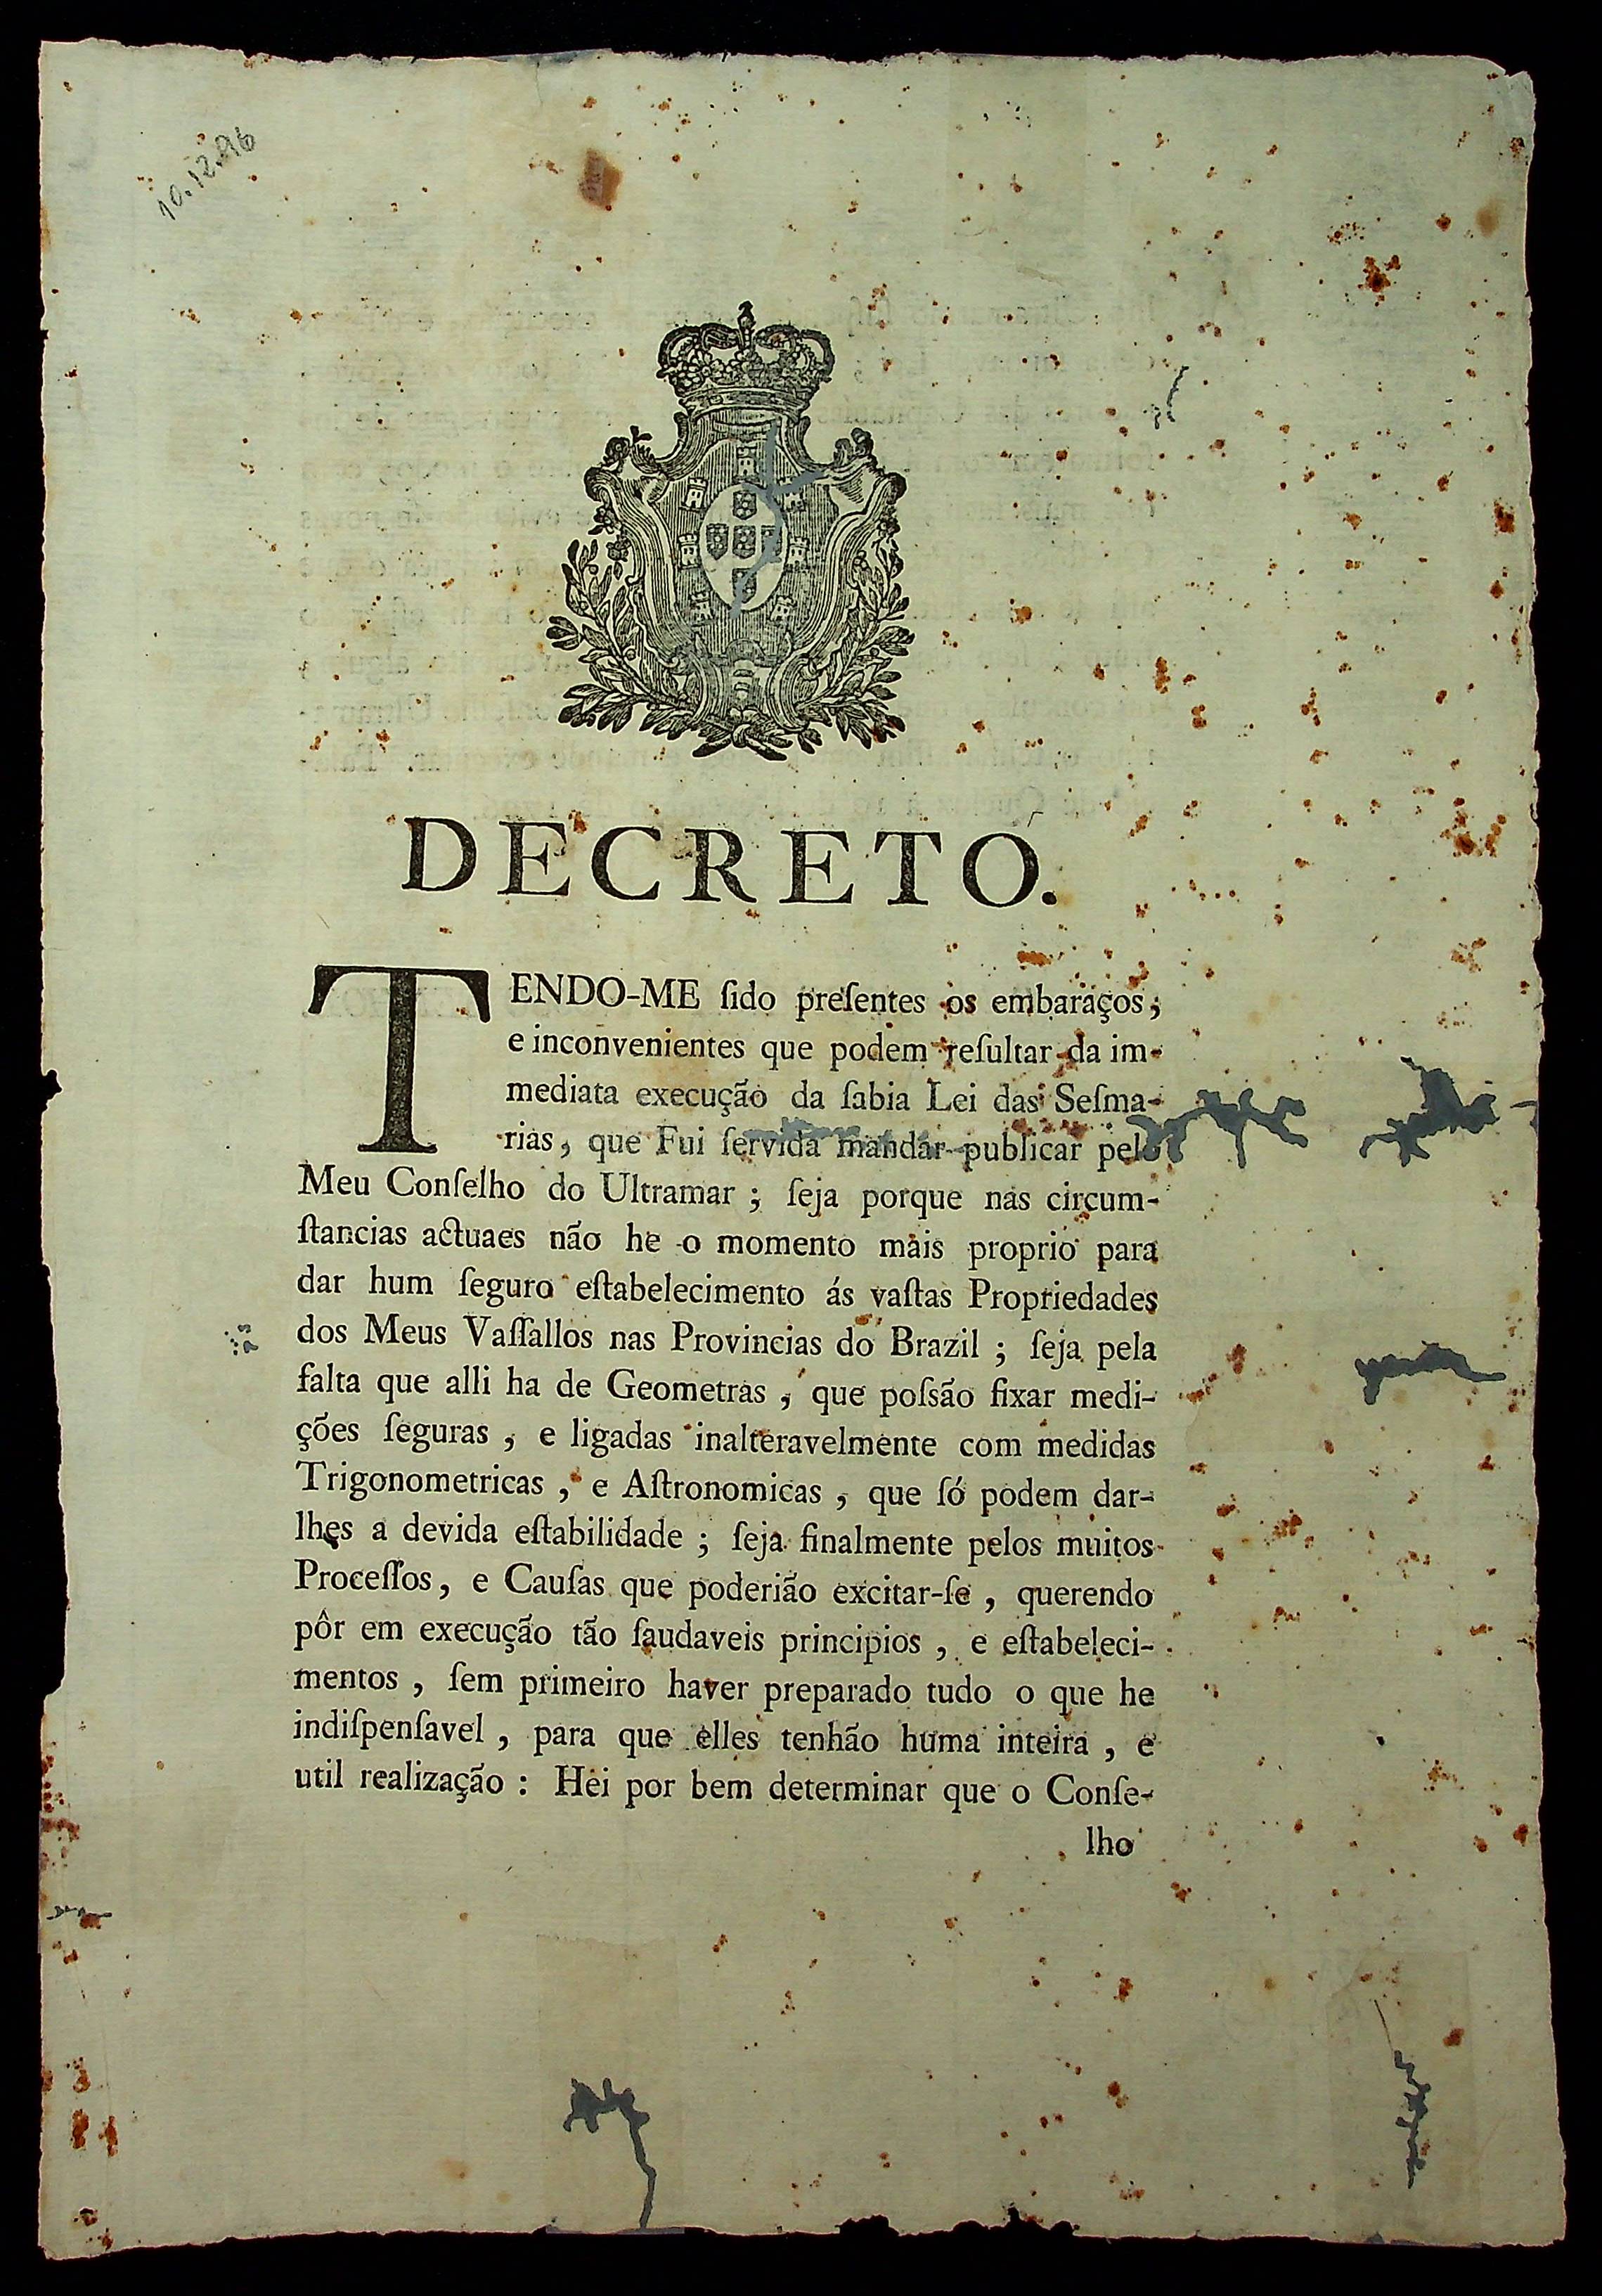 10.12.96
DECRETO.
TENDO-ME ſido preſentes os embaraços,
e inconvenientes que podem reſultar da im-
mediata execução da ſabia Lei das Seſma-
rias, que Fui ſervida mandar publicar pelo
Meu Conſelho do Ultramar ; ſeja porque nas circum-
ſtancias actuaes não he o momento mais proprio para
dar hum ſeguro eſtabelecimento ás vaſtas Propriedades
dos Meus Vaſſallos nas Provincias do Brazil ; ſeja pela
falta que alli ha de Geometras , que poſsão fixar medi-
ções ſeguras , e ligadas inalteravelmente com medidas
Trigonometricas , e Aſtronomicas , que ſó podem dar-
lhes a devida eſtabilidade ; ſeja finalmente pelos muitos
Proceſſos, e Cauſas que poderião excitar-ſe , querendo
pôr em execução tão ſaudaveis principios , e eſtabeleci-
mentos , ſem primeiro haver preparado tudo o que he
indiſpenſavel , para que elles tenhão huma inteira , e
util realização : Hei por bem determinar que o Conſe-
lho